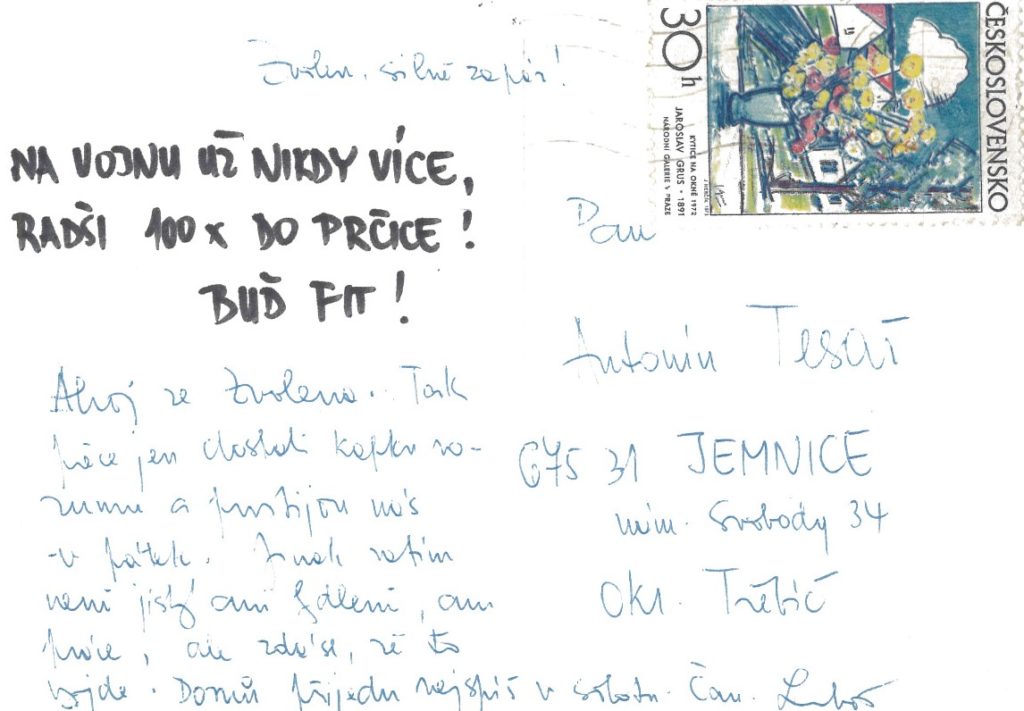 Zvolen. silně zapár!
NA VOJNU UŽ NIKDY VÍCE,
RADŠI 100x DO PRČICE!
BUĎ FIT!
Ahoj ze Zvolena. Tak
přece jen dostali kapku ro-
zumu a pustijou nás
v pátek. Jinak zatím
není jistý ani ani
práce, ale zdá se, že to
vyjde. Domů přijedu nejspíš v sobotu. Čau. Luboš
ČESKOSLOVENSKO
30h
KYTICE NA OKNĚ 1972
JAROSLAV GRUS • 1891
NÁRODNÍ GALERIE V PRAZE
Pan
Antonín Tesař
675 31 JEMNICE
nám. Svobody 34
okr. Třebíč